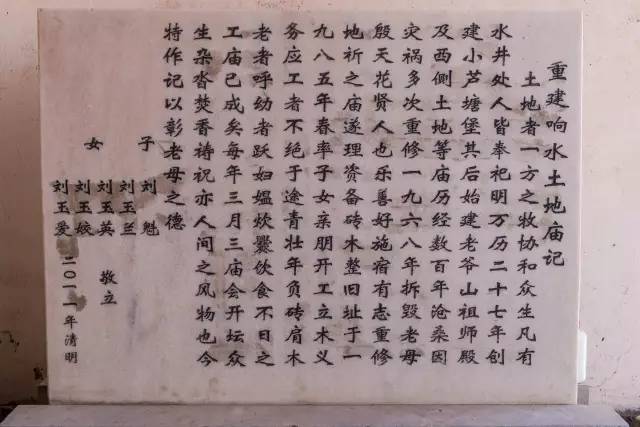 重建响水土地庙记
土地者一方之牧协和众生凡有
水井处人皆奉祀明万历二十七年创
建小芦塘堡其后始建老爷山祖师殿
及西侧土地等庙历经数百年沧桑因
灾祸多次重修一九六八年拆毁老母
殷天花贤人也乐善好施宿有志重修
地祈之庙遂理资备砖木整旧址于一
九八五年春率子女亲朋开工立木义
务应工者不绝于途青壮年负砖肩木
老者呼幼者跃妇媪炊爨饮食不日之
工庙已成矣每年三月三庙会开坛众
生杂沓焚香祷祝亦人间之风物也今
特作记以彰老母之德
子 刘魁
女 刘玉兰
刘玉英
刘玉姣
刘玉爱
敬立
二〇一一年清明